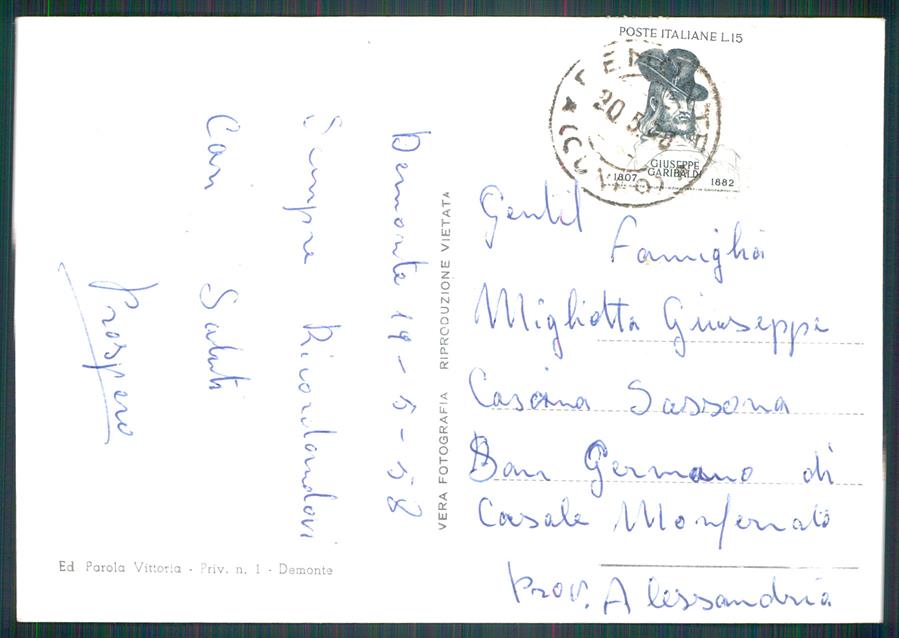 Demonte 19-5-58
Sempre Ricordandovi
Cari Saluti
Prospero
VERA FOTOGRAFIA RIPRODUZIONE VIETATA
Ed Parola Vittoria - Priv. n. 1 - Demonte
POSTE ITALIANE L.15
GIUSEPPE
GARIBALDI
1807 1882
20.5.58
(CUNEO)
Gentil
Famiglia
Migliotta Giuseppe
Cascina Sassona
San Germano di
Casale Monferrato
Prov. Alessandria